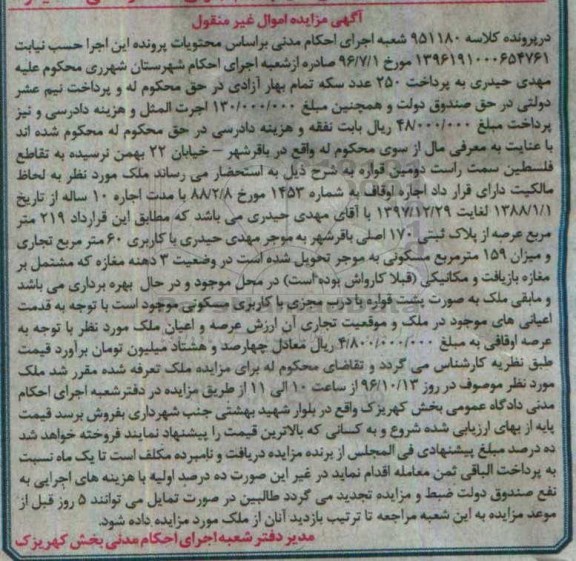 آگهی مزایده اموال غیر منقول
درپرونده کلاسه ۹۵۱۱۸۰ شعبه اجرای احکام مدنی براساس محتویات پرونده این اجرا حسب نیابت
۱۳۹۶۱۹۱۰۰۰۶۵۴۷۶۱ مورخ ۹۶/۷/۱ صادره ازشعبه اجرای احکام شهرستان شهرری محکوم علیه
مهدی حیدری به پرداخت ۲۵۰ عدد سکه تمام بهار آزادی در حق محکوم له و پرداخت نیم عشر
دولتی در حق صندوق دولت و همچنین مبلغ ۱۳۰/۰۰۰/۰۰۰ اجرت المثل و هزینه دادرسی و نیز
پرداخت مبلغ ۴۸/۰۰۰/۰۰۰ ریال بابت نفقه و هزینه دادرسی در حق محکوم له محکوم شده اند
با عنایت به معرفی مال از سوی محکوم له واقع در باقرشهر – خیابان ۲۲ بهمن نرسیده به تقاطع
فلسطین سمت راست دومین قواره به شرح ذیل به استحضار می رساند ملک مورد نظر به لحاظ
مالکیت دارای قرار داد اجاره اوقاف به شماره ۱۴۵۳ مورخ ۸۸/۲/۸ با مدت اجاره ۱۰ ساله از تاریخ
۱۳۸۸/۱/۱ لغایت ۱۳۹۷/۱۲/۲۹ با آقای مهدی حیدری می باشد که مطابق این قرارداد ۲۱۹ متر
مربع عرصه از پلاک ثبتی ۱۷۰ اصلی باقرشهر به موجر مهدی حیدری با کاربری ۶۰ متر مربع تجاری
و میزان ۱۵۹ مترمربع مسکونی به موجر تحویل شده است در وضعیت ۳ دهنه مغازه که مشتمل بر
مغازه بازیافت و مکانیکی (قبلا کارواش بوده است) در محل موجود و در حال بهره برداری می باشد
و مابقی ملک به صورت پشت قواره با درب مجزی با کاربری مسکونی موجود است با توجه به قدمت
اعیانی های موجود در ملک و موقعیت تجاری آن ارزش عرصه و اعیان ملک مورد نظر با توجه به
عرصه اوقافی به مبلغ ۴/۸۰۰/۰۰۰/۰۰۰ ریال معادل چهارصد و هشتاد میلیون تومان برآورد قیمت
طبق نظریه کارشناس می گردد و تقاضای محکوم له برای مزایده ملک تعرفه شده مقرر شد ملک
مورد نظر موصوف در روز ۹۶/۱۰/۱۳ از ساعت ۱۰ الی ۱۱ از طریق مزایده در دفترشعبه اجرای احکام
مدنی دادگاه عمومی بخش کهریزک واقع در بلوار شهید بهشتی جنب شهرداری بفروش برسد قیمت
پایه از بهای ارزیابی شده شروع و به کسانی که بالاترین قیمت را پیشنهاد نمایند فروخته خواهد شد
ده درصد مبلغ پیشنهادی فی المجلس از برنده مزایده دریافت و نامبرده مکلف است تا یک ماه نسبت
به پرداخت الباقی ثمن معامله اقدام نماید در غیر این صورت ده درصد اولیه با هزینه های اجرایی به
نفع صندوق دولت ضبط و مزایده تجدید می گردد طالبین در صورت تمایل می توانند ۵ روز قبل از
موعد مزایده به این شعبه مراجعه تا ترتیب بازدید آنان از ملک مورد مزایده داده شود.
مدیر دفتر شعبه اجرای احکام مدنی بخش کهریزک